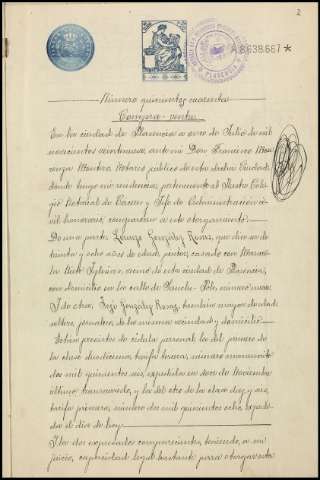 2
A 8638667 *
PLASENCIA
Número quinientos cuarenta
Compra-venta
En la ciudad de Plasencia a once de Julio de mil
novecientos veintinueve, ante mi Don Francisco
Montero, Notario público de esta dicha Ciudad
donde tengo mi residencia, perteneciente al Ilustre Cole
gio Notarial de Cáceres y Jefe de Administración ci
vil honorario, comparecen a este otorgamiento:
De una parte, Lorenzo González Ramos, que dice ser de
treinta y ocho años de edad, casado con
vecino de esta ciudad de Plasencia,
con domicilio en la calle de
Y de otra, José González Ramos, también mayor de edad
soltero, jornalero, de la misma vecindad y domicilio.
Están provistos de cédula personal la del primero de
la clase duodécima, tarifa tercera, número
quinientos seis, expedida en doce de Noviembre
último y la del otro de la clase diez y seis,
tarifa primera, número dos mil quinientos ocho, expedi
da el día de hoy.
Y los dos expresados comparecientes, teniendo, a mi
juicio, capacidad legal bastante para otorgar esta